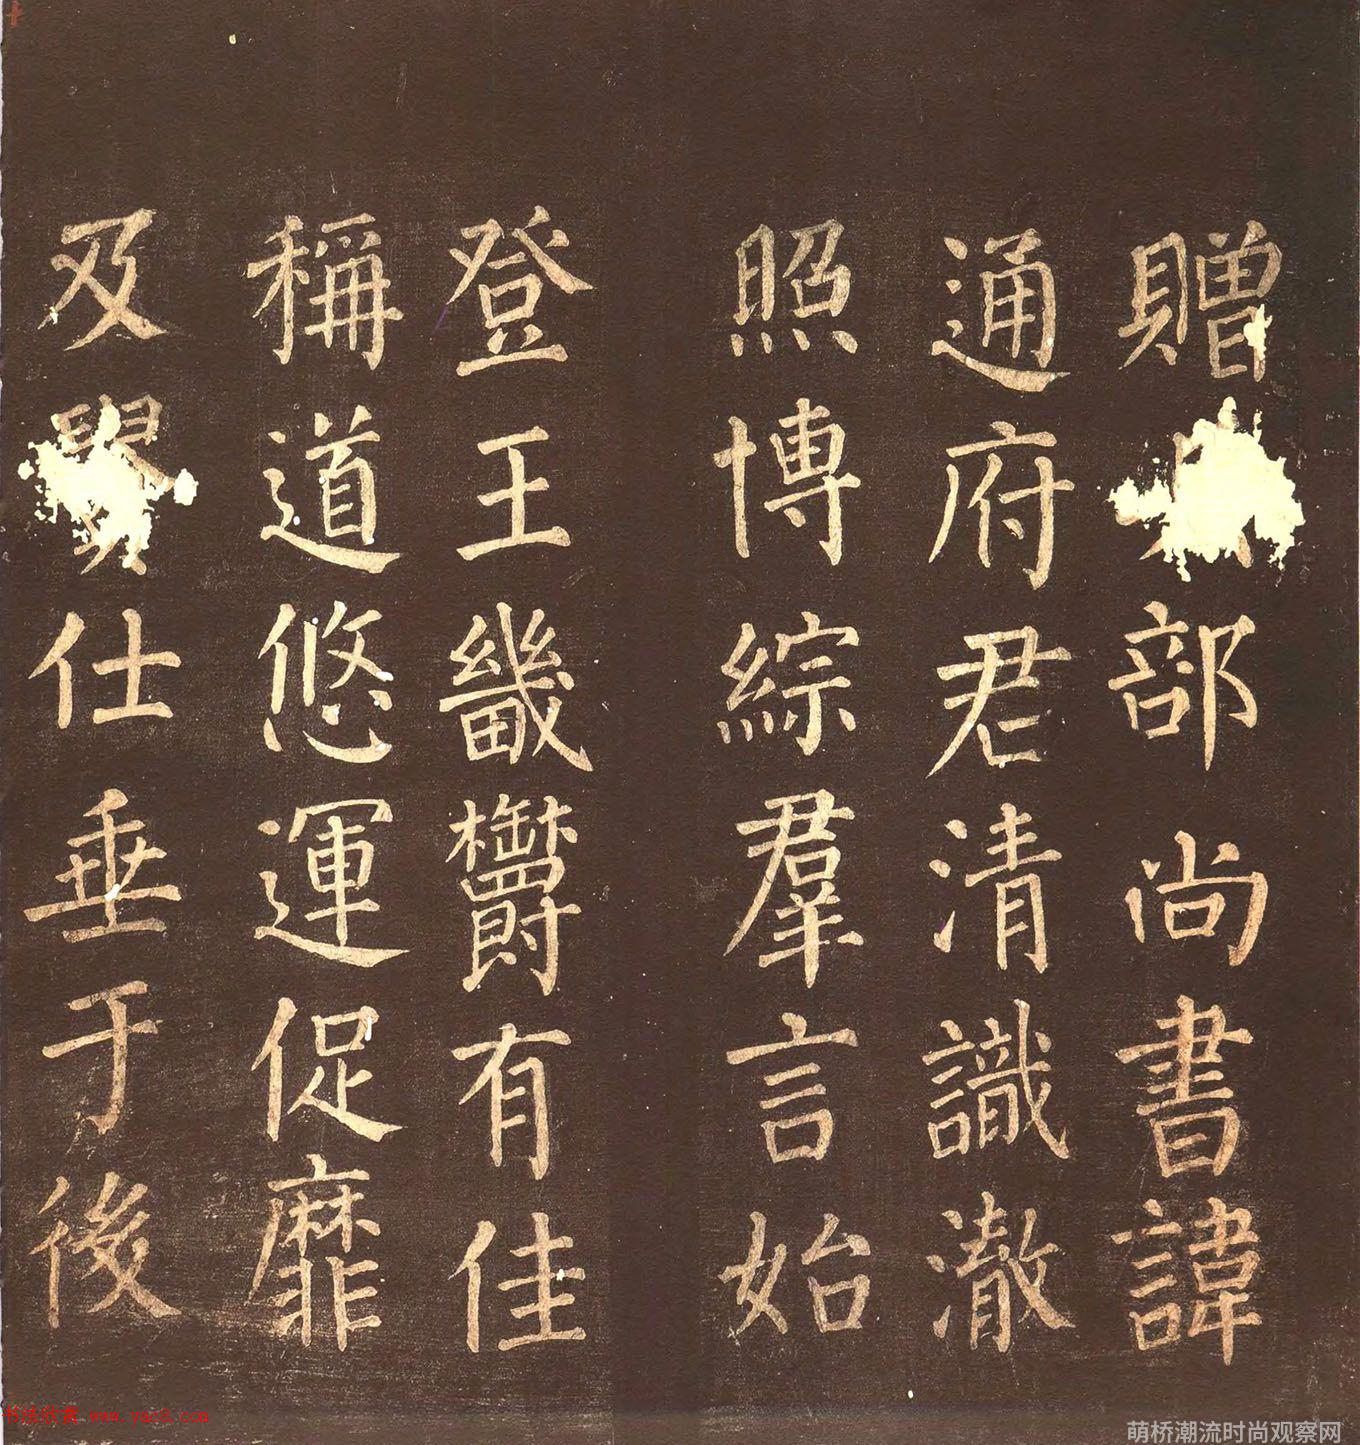 贈部尚書諱
通府君清識澈
照博綜羣言始
登王畿欝有佳
稱道悠運促靡
及仕垂于後
书法欣赏 www.yac8.com
萌桥潮流时尚观察网